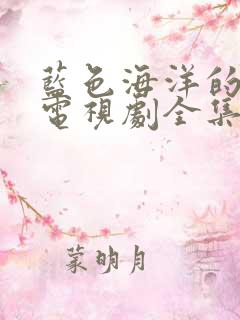 藍色海洋的
電視劇全集
蒙明月